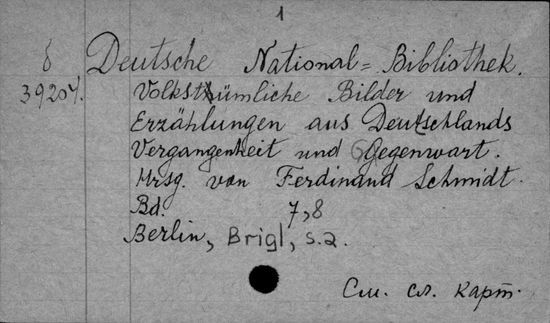 1
δ Deutsche National=Bibliothek.
39204. Volksthümliche Bilder und
Erzählungen aus Deutschlands
Vergangenheit und Gegenwart.
Hrsg. von Ferdinand Schmidt.
Bd. 7,8
Berlin, Brigl, s.a.
См. сл. карт.